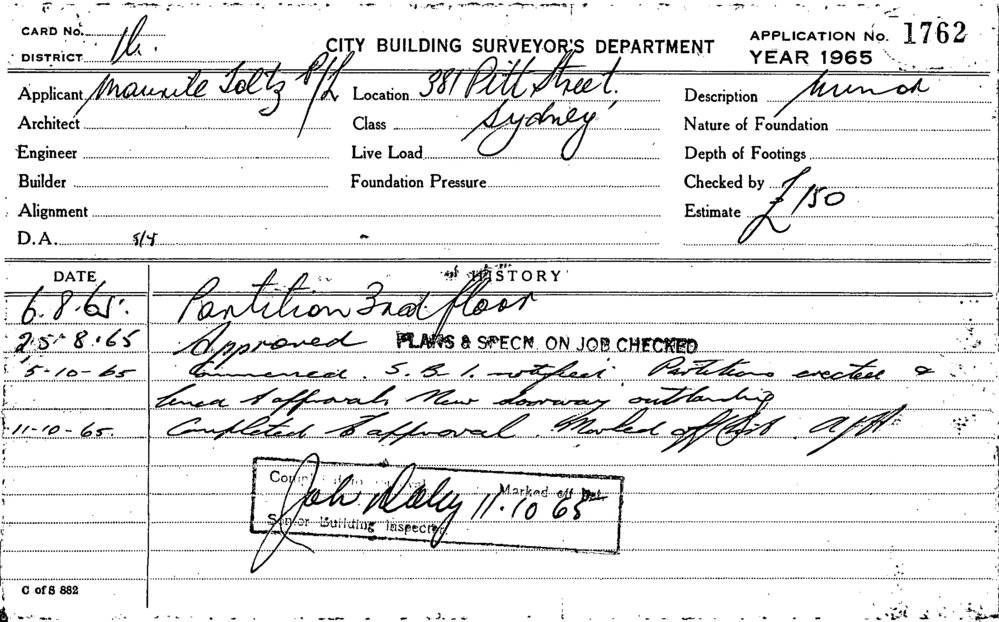 CARD No.
DISTRICT
CITY BUILDING SURVEYOR'S DEPARTMENT
APPLICATION No. 1762
YEAR 1965
Applicant P/L
Location 381 Pitt Street.
Sydney
Description
Architect
Class
Nature of Foundation
Engineer
Live Load
Depth of Footings
Builder
Foundation Pressure
Checked by
Alignment
Estimate £150
D.A.
DATE
HISTORY
6.8.65. Partition 3rd floor
25.8.65 Approved PLANS & SPECN. ON JOB CHECKED
5-10-65 Commenced. S.B.I. notified. Partitions erected &
lined to approval. New doorway outstanding
11-10-65. Completed to approval. Marked off List.
Marked off
11.10 65
Senior Building Inspector
C of S 882